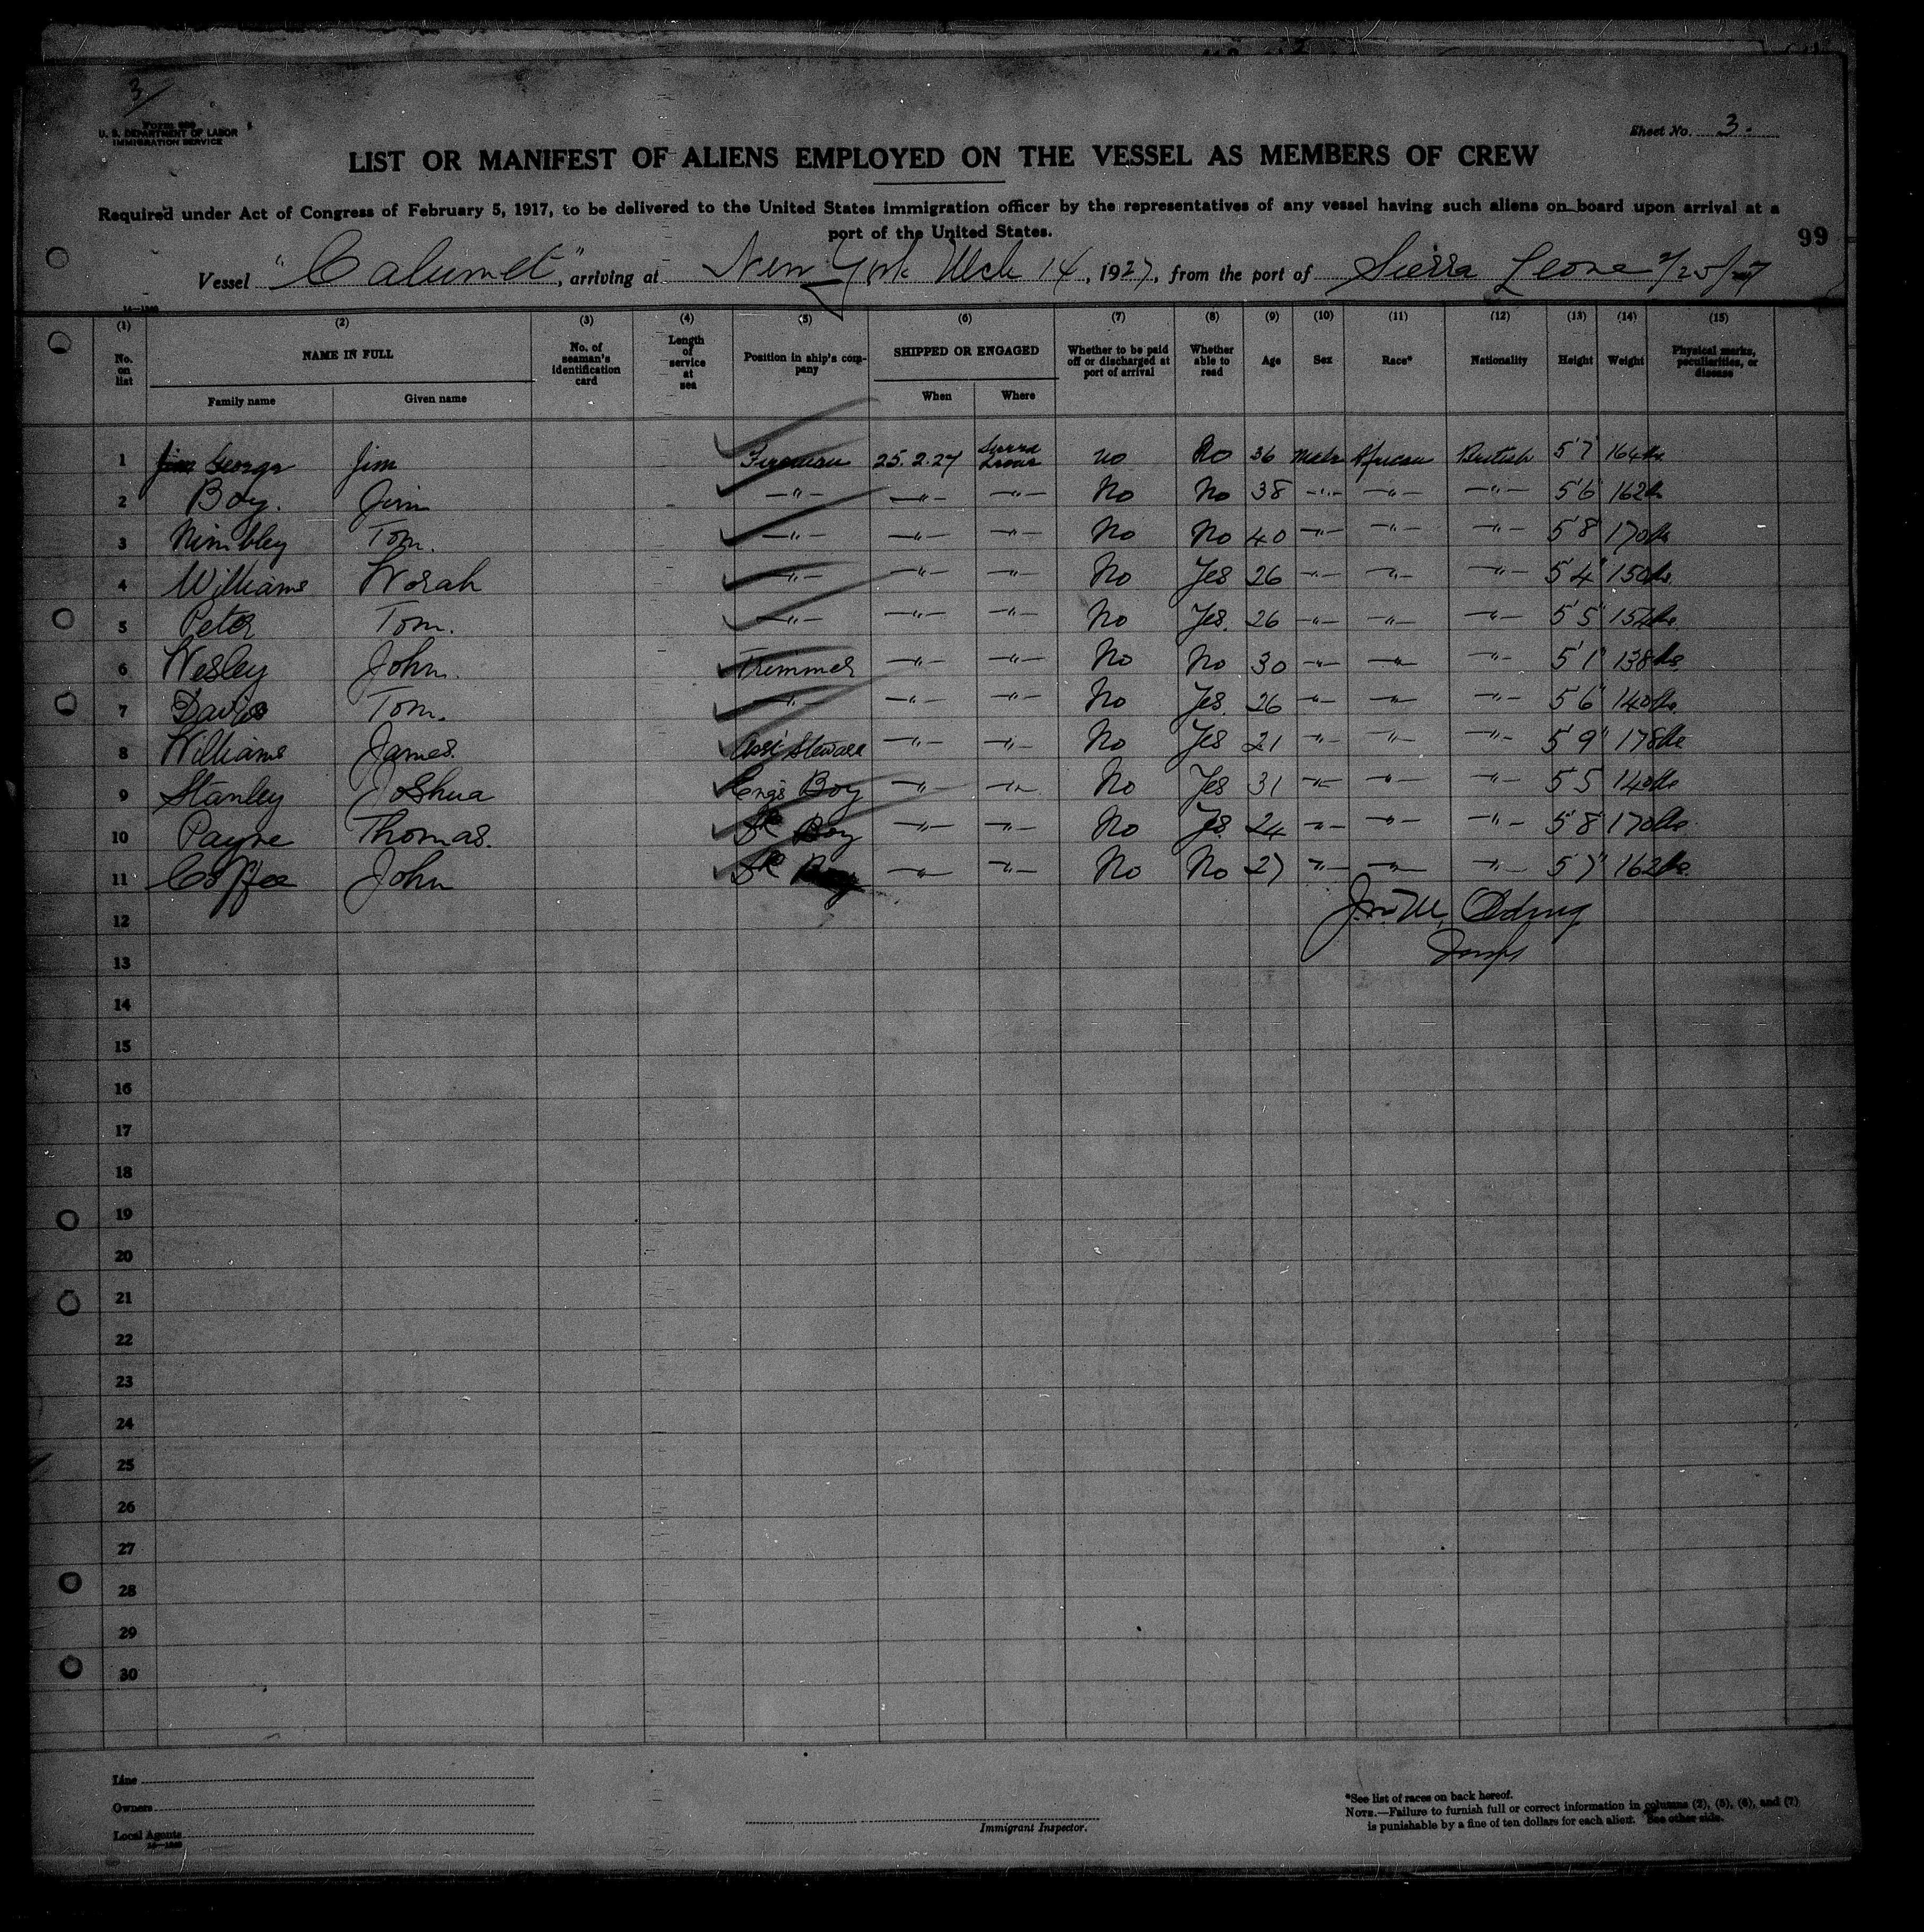 3/
Form 680
U. S. DEPARTMENT OF LABOR
IMMIGRATION SERVICE
Sheet No. 3.
LIST OR MANIFEST OF ALIENS EMPLOYED ON THE VESSEL AS MEMBERS OF CREW
Required under Act of Congress of February 5, 1917, to be delivered to the United States immigration officer by the representatives of any vessel having such aliens on board upon arrival at a
port of the United States.
99
Vessel "Calumet", arriving at New York Mch 14, 1927, from the port of Sierra Leone 2/25/27
(1) (2) (3) (4) (5) (6) (7) (8) (9) (10) (11) (12) (13) (14) (15)
No. on list NAME IN FULL No. of seaman's identification card Length of service at sea Position in ship's company SHIPPED OR ENGAGED Whether to be paid off or discharged at port of arrival Whether able to read Age Sex Race* Nationality Height Weight Physical marks, peculiarities, or disease
Family name Given name When Where
1 George Jim Fireman 25.2.27 Sierra Leone no No 36 Male African British 5'7" 164 lbs
2 Boy. Jim -"- -"- -"- No No 38 -"- -"- -"- 5'6" 162 lbs
3 Nimbley Tom. -"- -"- -"- No No 40 -"- -"- -"- 5'8" 170 lbs
4 Williams Worah -"- -"- -"- No Yes 26 -"- -"- -"- 5'4" 150 lbs.
5 Peter Tom. -"- -"- -"- No Yes. 26 -"- -"- -"- 5'5" 154 lbs
6 Wesley John. Trimmer -"- -"- No No 30 -"- -"- -"- 5'1" 138 lbs
7 Davies Tom. -"- -"- -"- No Yes. 26 -"- -"- -"- 5'6" 140 lbs.
8 Williams James. Asst Steward -"- -"- No Yes 21 -"- -"- -"- 5'9" 178 lbs
9 Stanley Joshua Engs Boy -"- -"- No Yes 31 -"- -"- -"- 5'5 140 lbs
10 Payne Thomas. Boy -"- -"- No Yes. 24 -"- -"- -"- 5'8" 170 lbs.
11 Coffee John -"- -"- No No 27 -"- -"- -"- 5'7" 162 lbs.
12
13
14
15
16
17
18
19
20
21
22
23
24
25
26
27
28
29
30
Line
Owners
Local Agents
Immigrant Inspector.
*See list of races on back hereof.
NOTE.—Failure to furnish full or correct information in columns (2), (5), (6), and (7)
is punishable by a fine of ten dollars for each alien. See other side.